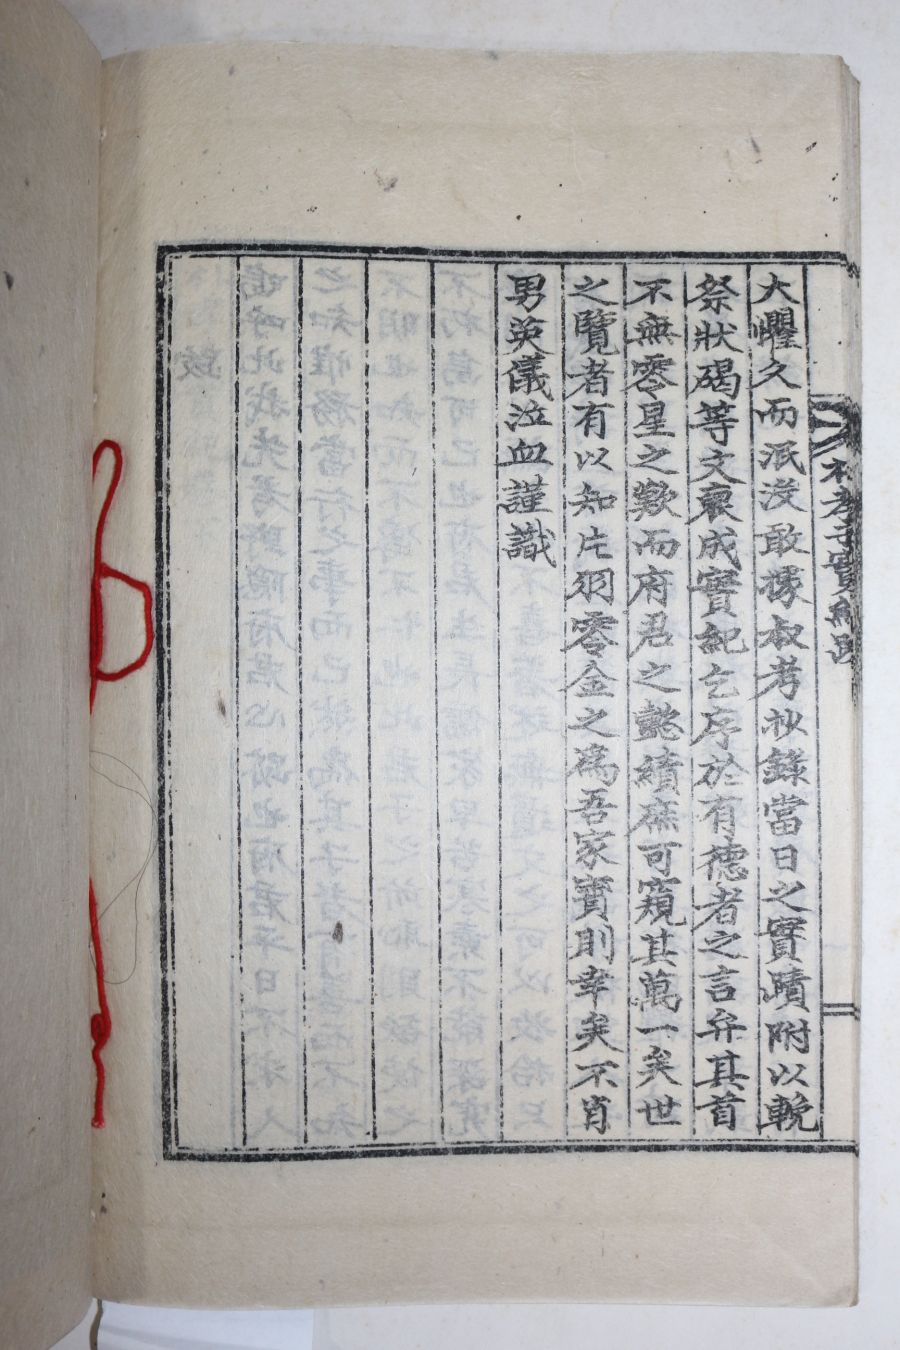 大懼久而泯沒敢據叔考抄錄當日之實蹟附以輓
祭狀碣等文裒成實紀乞序於有德者之言弁其首
不無零星之歎而府君之懿績庶可窺其萬一矣世
之覽者有以知片羽零金之爲吾家寶則幸矣不肖
男英儀泣血謹識